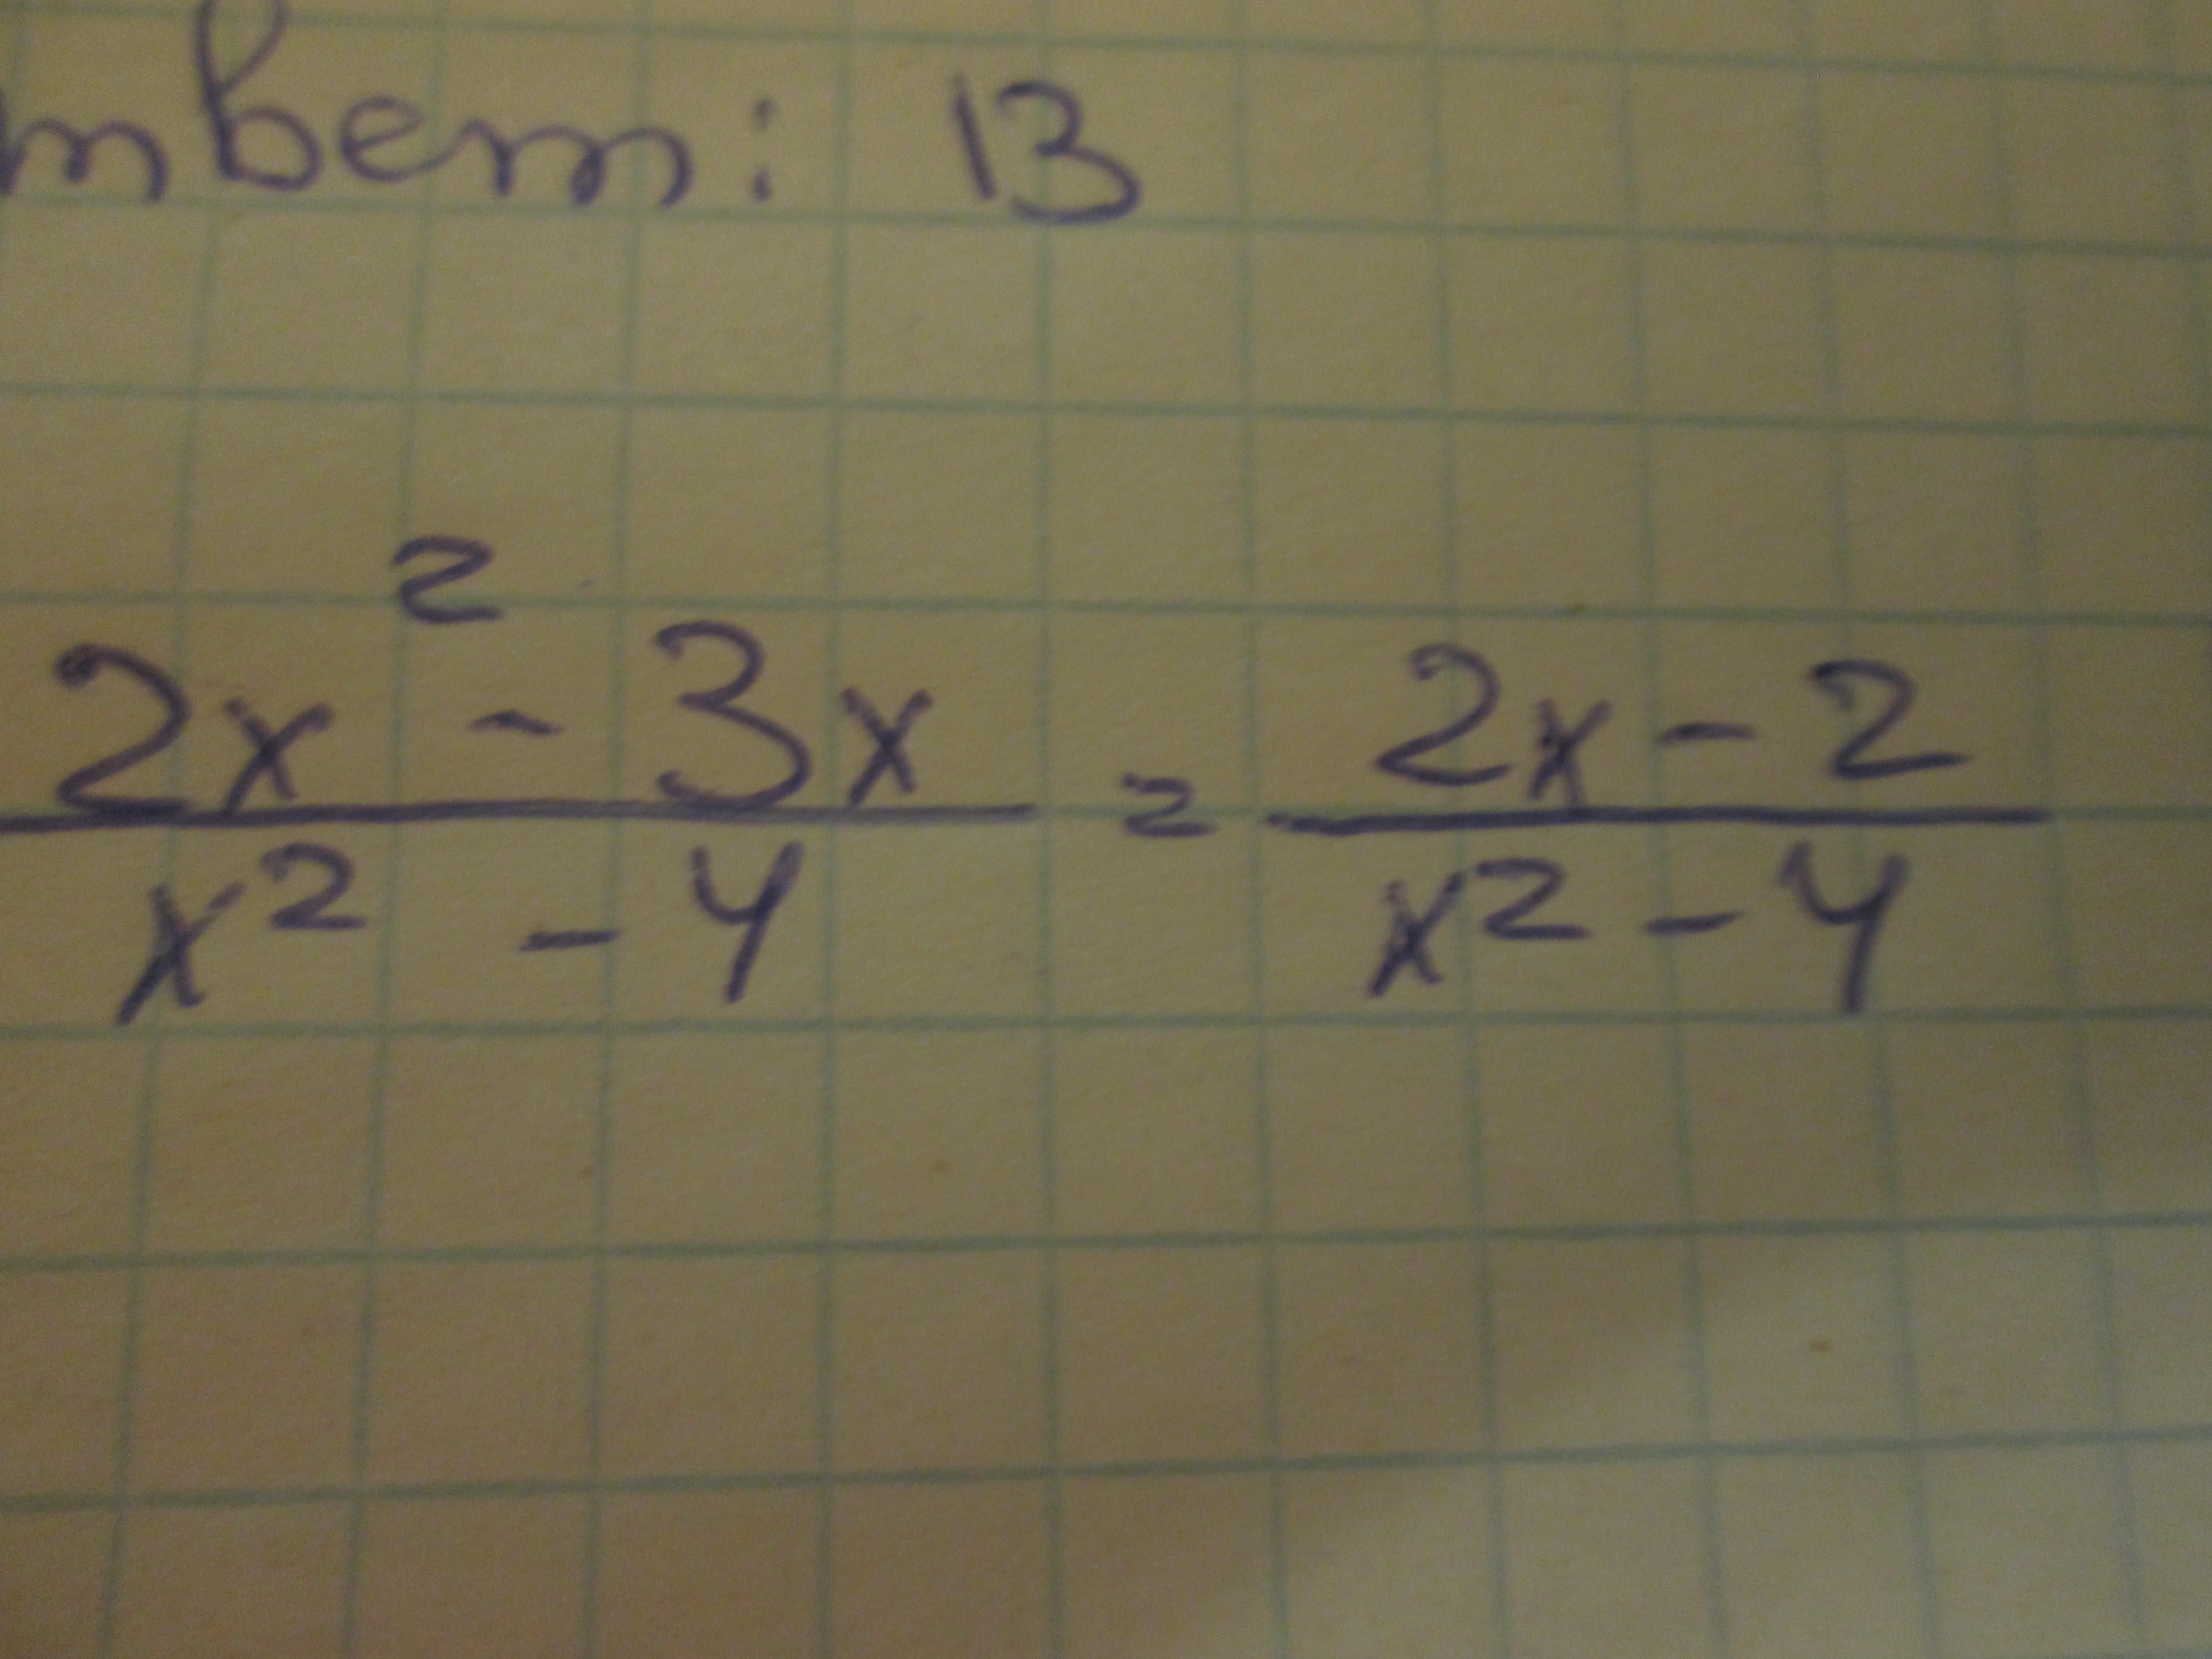 твет: 13
2x² - 3x / x² - 4 = 2x - 2 / x² - 4